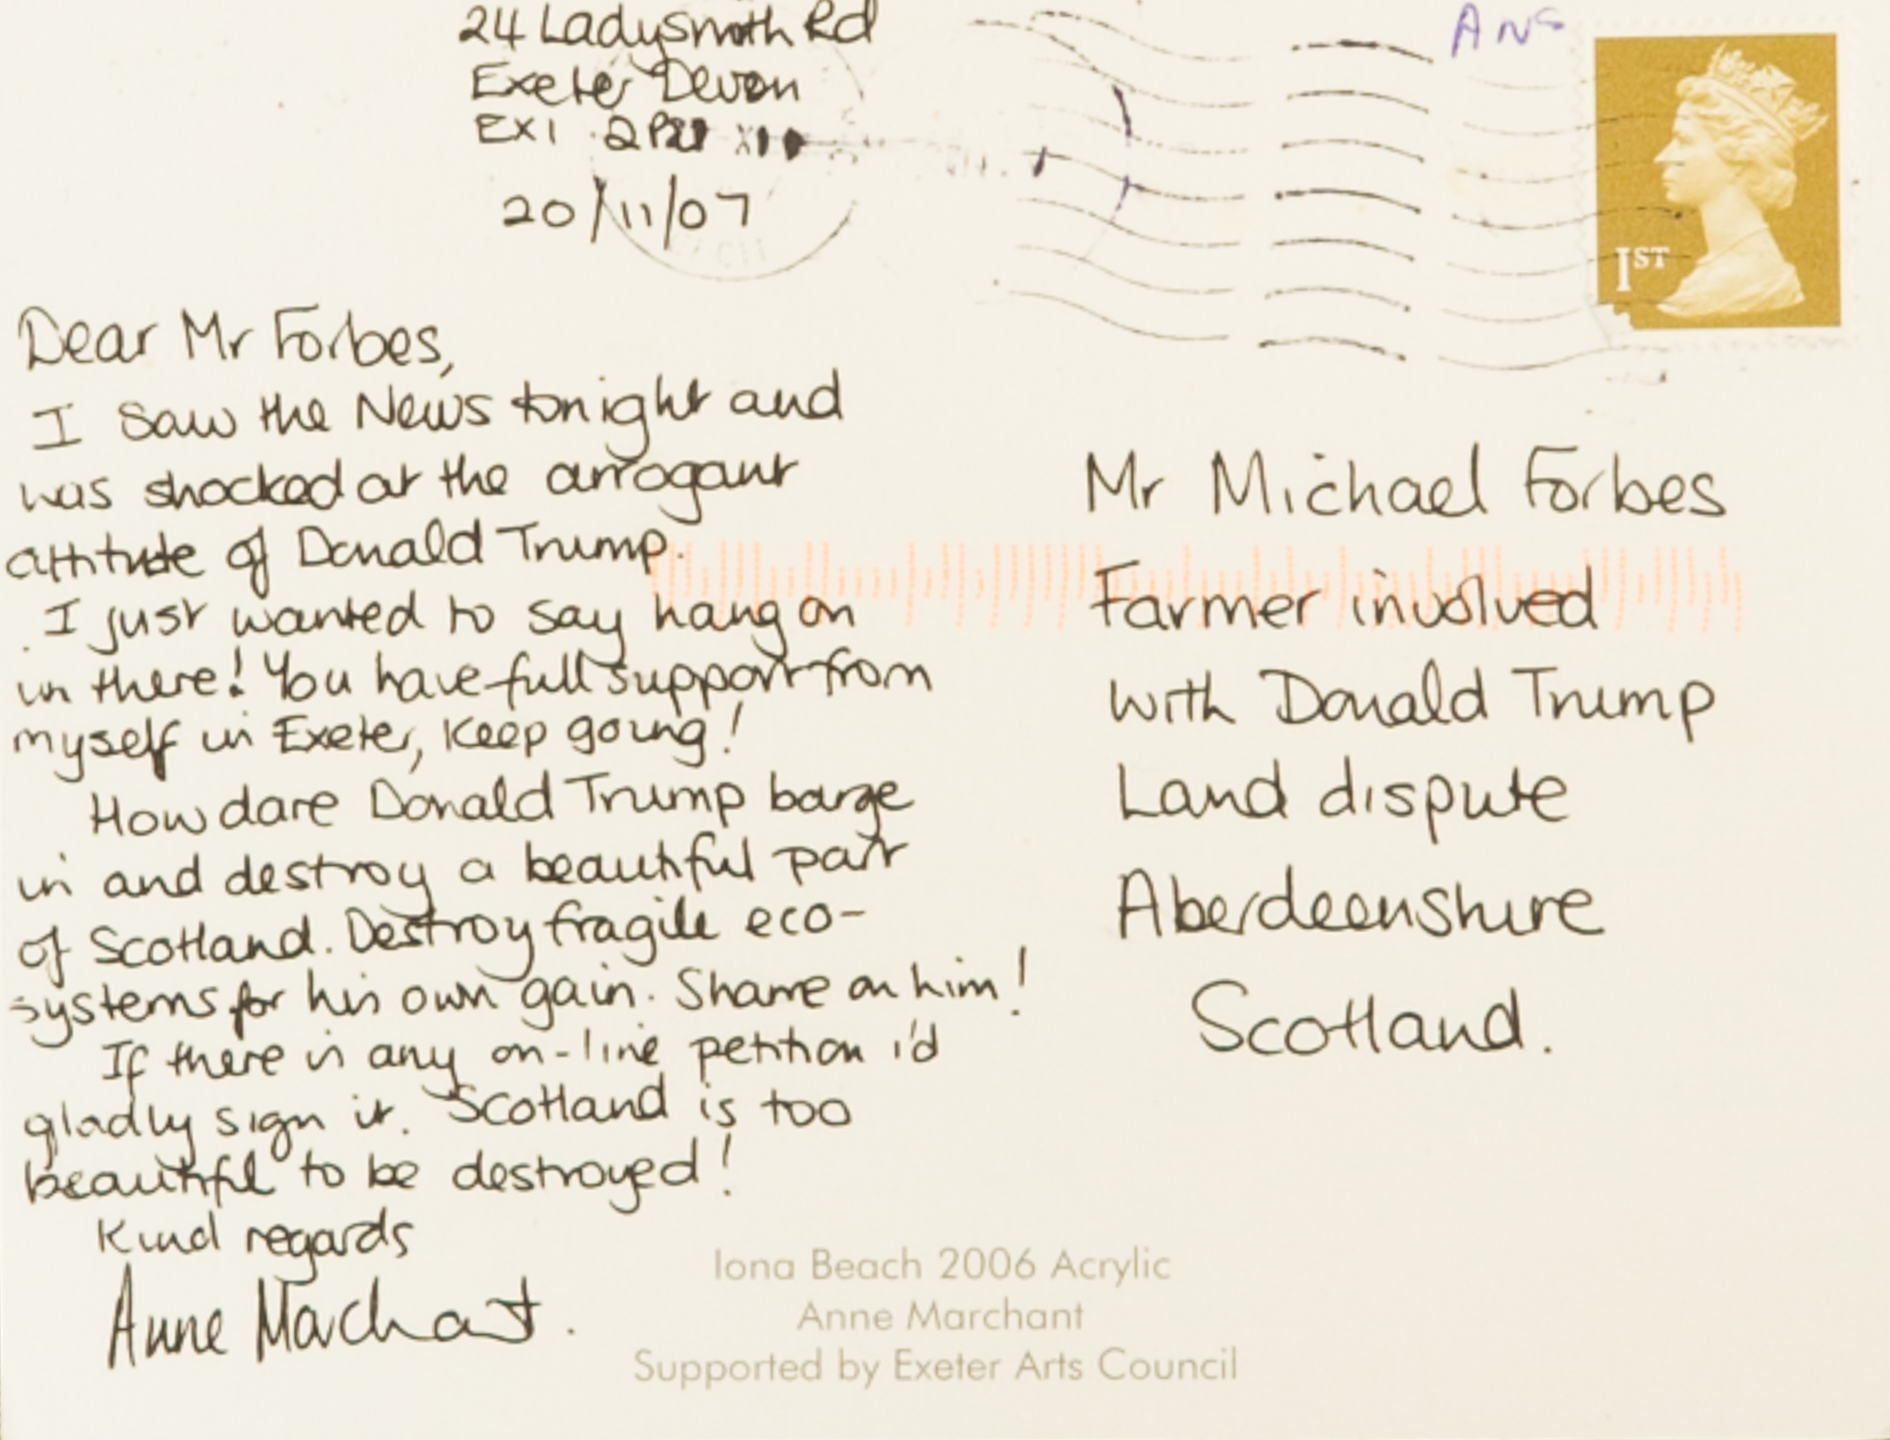 24 Ladysmith Rd
Exeter Devon
EX1
20/11/07
ANG
1ST
Dear Mr Forbes,
I saw the News tonight and
was shocked at the arrogant
attitude of Donald Trump.
I just wanted to say hang on
in there! You have full support from
myself in Exeter, Keep going!
How dare Donald Trump barge
in and destroy a beautiful part
of Scotland. Destroy fragile eco-
systems for his own gain. Shame on him!
If there is any on-line petition i'd
gladly sign it. Scotland is too
beautiful to be destroyed!
Kind regards
Anne Marchant.
Mr Michael Forbes
Farmer involved
with Donald Trump
Land dispute
Aberdeenshire
Scotland.
Iona Beach 2006 Acrylic
Anne Marchant
Supported by Exeter Arts Council